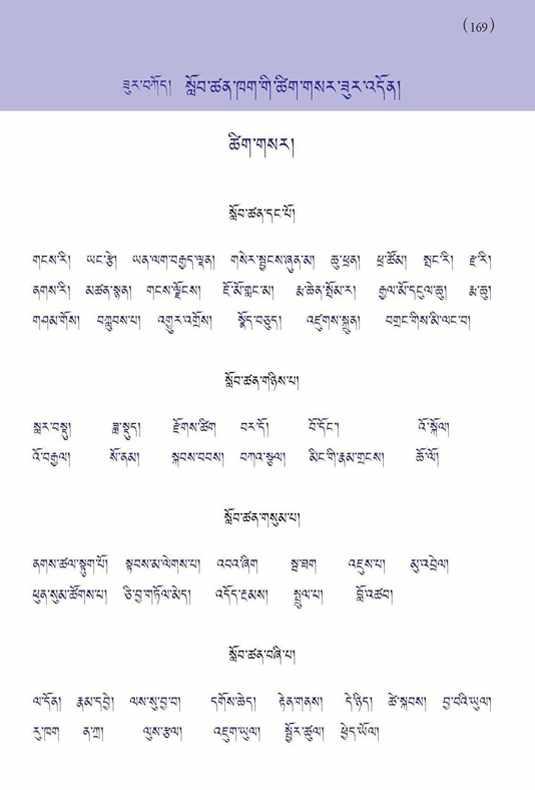 (169)
ཟུར་བཀོད། སློབ་ཚན་ཁག་གི་ཚིག་གསར་ཟུར་འདོན།
ཚིག་གསར།
སློབ་ཚན་དང་པོ།
གངས་རི། ཡང་རྩེ། ཡན་ལག་བརྒྱད་ལྡན། གསེར་སྦྱངས་ཞུན་མ། ཆུ་ཕྲན། ཕྲ་ཚོམ། སྤང་རི། རྫ་རི།
ནགས་རི། མཚན་སྙན། གངས་ལྗོངས། ཇོ་མོ་གླང་མ། རྨ་ཆེན་སྤོམ་ར། རྒྱལ་མོ་དངུལ་ཆུ། རྨ་ཆུ།
གཤམ་གོས། བཀླུབས་པ། འགྱུར་འགྲོས། སྣོད་བཅུད། འཛུགས་སྐྲུན། བགྲང་གིས་མི་ལང་བ།
སློབ་ཚན་གཉིས་པ།
སླར་བསྡུ། ཟླ་སྡུད། རྫོགས་ཚིག བར་དོ། བོ་དོང་། འོ་སྐོལ།
འོ་བརྒྱལ། སོ་ནམ། སྐབས་བབས། བཀའ་སྩལ། མིང་གི་རྣམ་གྲངས། ཆོ་ལོ།
སློབ་ཚན་གསུམ་པ།
ནགས་ཚལ་སྟུག་པོ། སྟབས་མ་ལེགས་པ། འབའ་ཞིག སྦ་ཐག འཇུས་པ། མུ་འབྲེལ།
ཕུན་སུམ་ཚོགས་པ། ཅི་བྱ་གཏོལ་མེད། འདོད་རྔམས། སྤྲུལ་པ། བློ་འཚབ།
སློབ་ཚན་བཞི་པ།
ལ་དོན། རྣམ་དབྱེ། ལས་སུ་བྱ་བ། དགོས་ཆེད། རྟེན་གནས། དེ་ཉིད། ཚེ་སྐབས། བྱ་བའི་ཡུལ།
རུ་ཁག ན་ཀྲ། ལུས་རྩལ། འཇུག་ཡུལ། སྦྱོར་ཚུལ། ཕྱེད་ཡོལ།